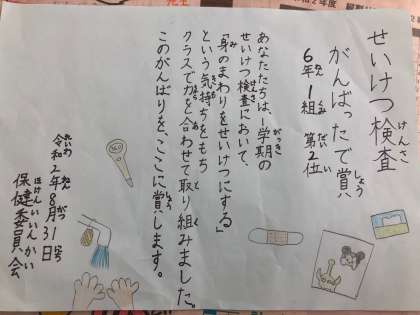 せいけつ検査
がんばったで賞
6年1組 第2位
あなたたちは、1学期の
せいけつ検査において、
「身のまわりをせいけつにする」
という気持ちをもち
クラスで力を合わせて取り組みました。
このがんばりを、ここに賞します。
令和2年8月31日
保健委員会